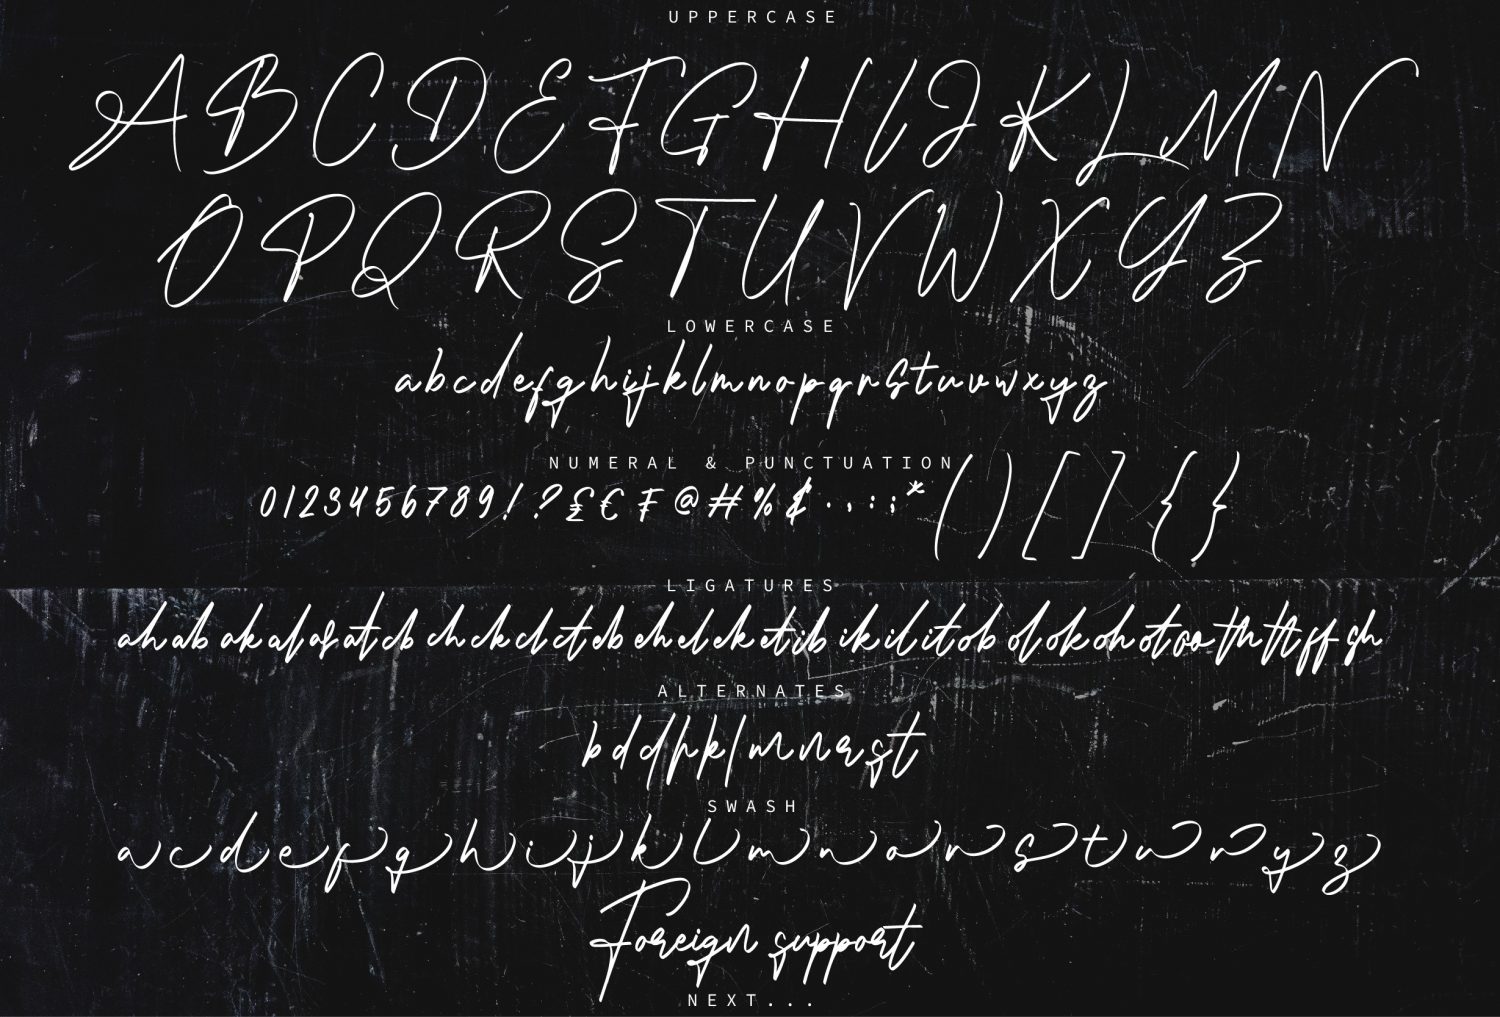 UPPERCASE
ABCDEFGHIJKLMN
OPQRSTUVWXYZ
LOWERCASE
abcdefghijklmnopqrstuvwxyz
NUMERAL & PUNCTUATION
0123456789!?£€₣@#%¢.,:;*()[]{}
LIGATURES
ah ab ak al as at cb ch ck cl ct eb eh el ek et ib ik il it ob ol ok oh ot oo th tt ff sh
ALTERNATES
bddhklmnrst
SWASH
acdefghijklmnorstuvyz
Foreign support
NEXT...